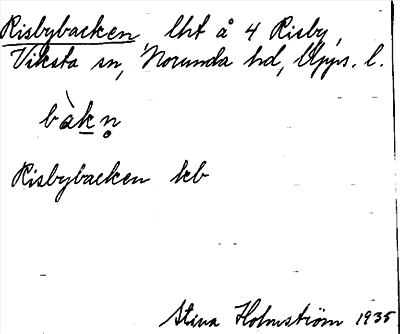 Risbybacken, lht å 4 Risby,
Viksta sn, Norunda hd, Upps. l.
bàkn̥
Risbybacken kb
Stina Holmström 1935